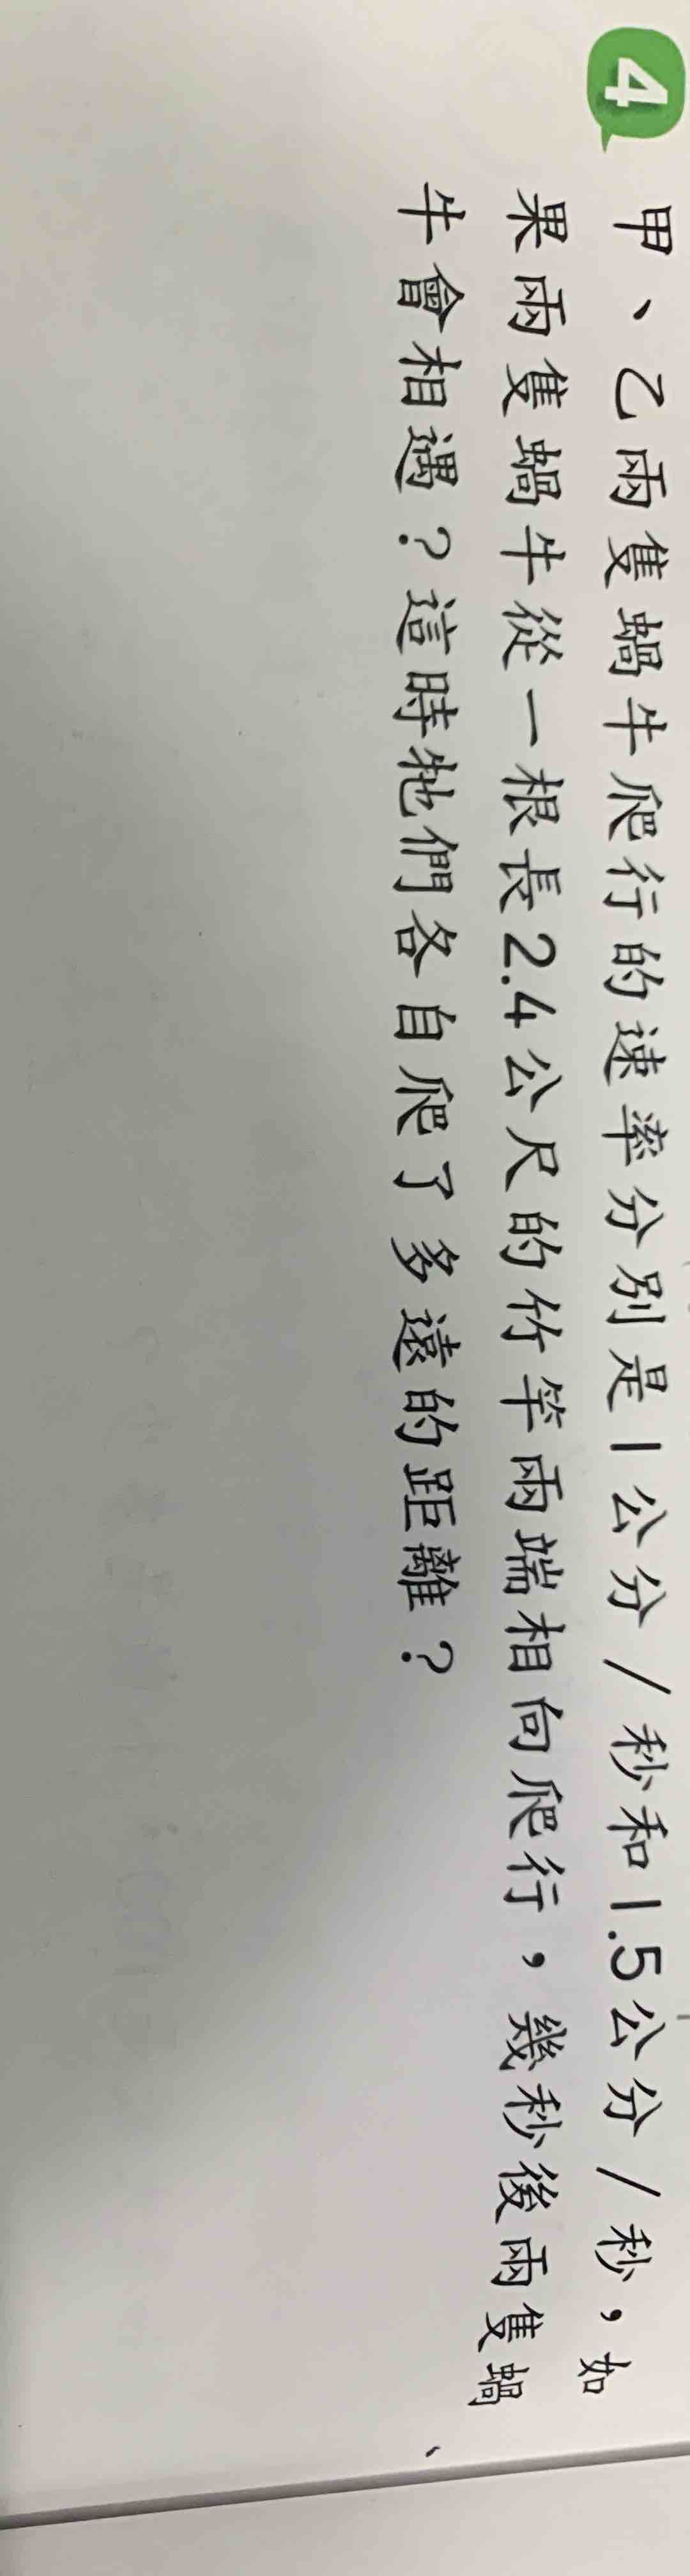 4 甲、乙兩隻蝸牛爬行的速率分別是1公分/秒和1.5公分/秒,如
果兩隻蝸牛從一根長2.4公尺的竹竿兩端相向爬行,幾秒後兩隻蝸
牛會相遇?這時牠們各自爬了多遠的距離?